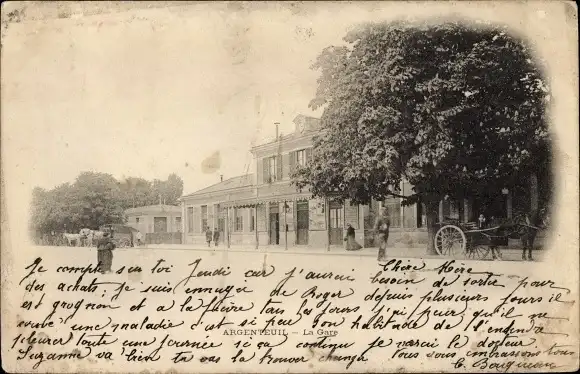 Chère Mère
Je compte sur toi Jeudi car j'aurai besoin de sortir pour
des achats je suis ennuyée de Roger depuis plusieurs jours il
est grognon et a la fièvre tous les jours j'ai peur qu'il ne
couve une maladie c'est si peu son habitude de l'entendre
ARGENTEUIL — La Gare
pleurer toute une journée si ça continue je verrai le docteur.
Suzanne va bien tu vas la trouver changer Nous vous embrassons tous